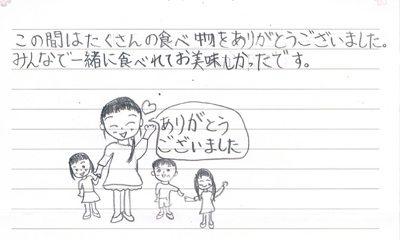 この間はたくさんの食べ物をありがとうございました。
みんなで一緒に食べれてお美味しかったです。
ありがとう
ございました